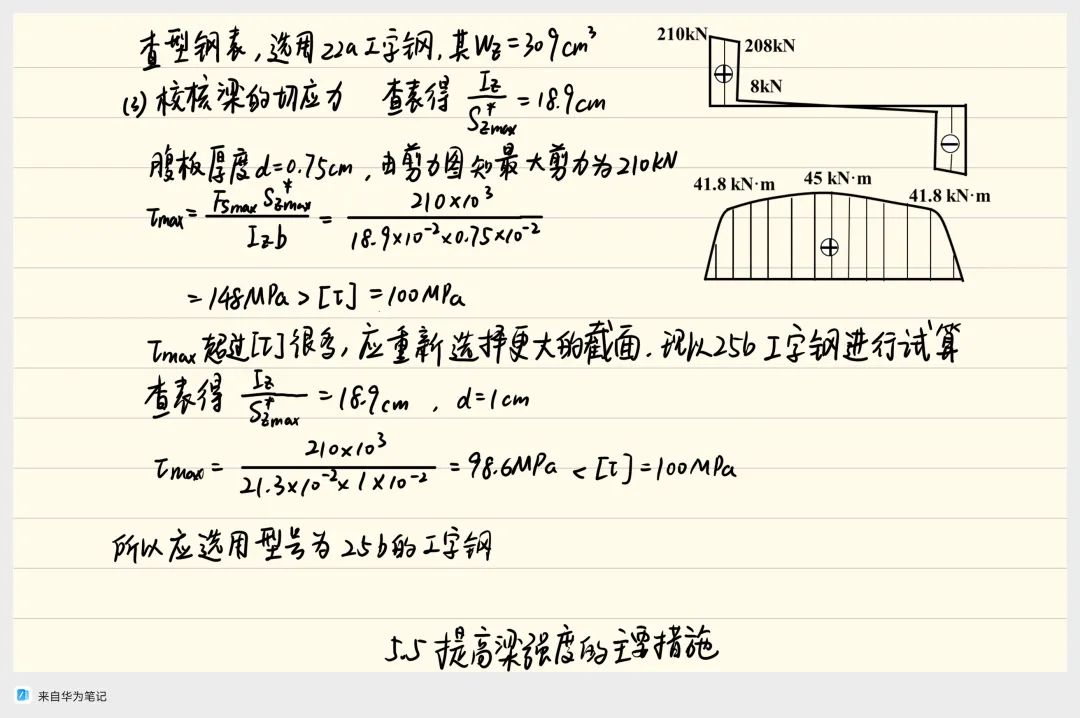 查型钢表，选用22a工字钢，其Wz=309cm³
(3) 校核梁的切应力 查表得 Iz/S*zmax =18.9cm
腹板厚度d=0.75cm，由剪力图知最大剪力为210kN
τmax= FSmax S*zmax / Iz b = 210×10³ / 18.9×10⁻²×0.75×10⁻²
=148MPa>[τ]=100MPa
τmax超过[τ]很多，应重新选择更大的截面.现以25b工字钢进行试算
查表得 Iz/S*zmax =18.9cm ，d=1cm
τmax= 210×10³ / 21.3×10⁻²×1×10⁻² =98.6MPa <[τ]=100MPa
所以应选用型号为25b的工字钢
5.5 提高梁强度的主要措施
210kN
208kN
8kN
41.8 kN·m
45 kN·m
41.8 kN·m
来自华为笔记